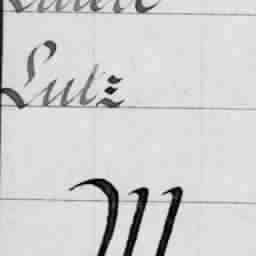 Lutz
M